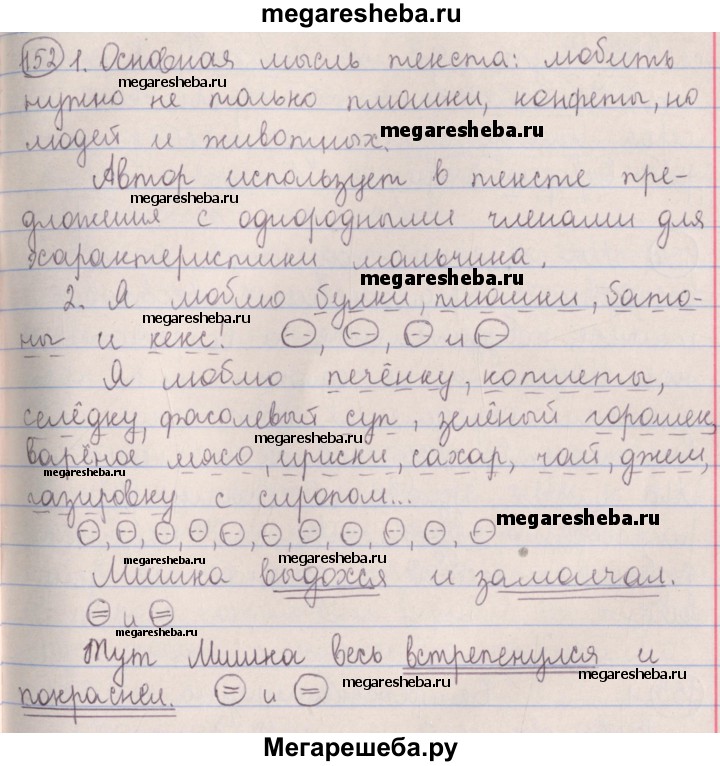 megaresheba.ru
152 1. Основная мысль текста: любить
megaresheba.ru
нужно не только плюшки, конфеты, но
людей и животных.
megaresheba.ru
Автор использует в тексте пре-
megaresheba.ru
дложения с однородными членами для
характеристики мальчика.
megaresheba.ru
2. Я люблю булки, плюшки, бато-
megaresheba.ru
ны и кекс! , , и
Я люблю печёнку, котлеты,
селёдку, фасолевый суп, зелёный горошек,
megaresheba.ru
варёное мясо, ириски, сахар, чай, джем,
megaresheba.ru
газировку с сиропом...
megaresheba.ru
megaresheba.ru
megaresheba.ru
Мишка выдохся и замолчал.
и
megaresheba.ru
Тут Мишка весь встрепенулся и
megaresheba.ru
megaresheba.ru
покраснел. и
Мегарешеба.ру